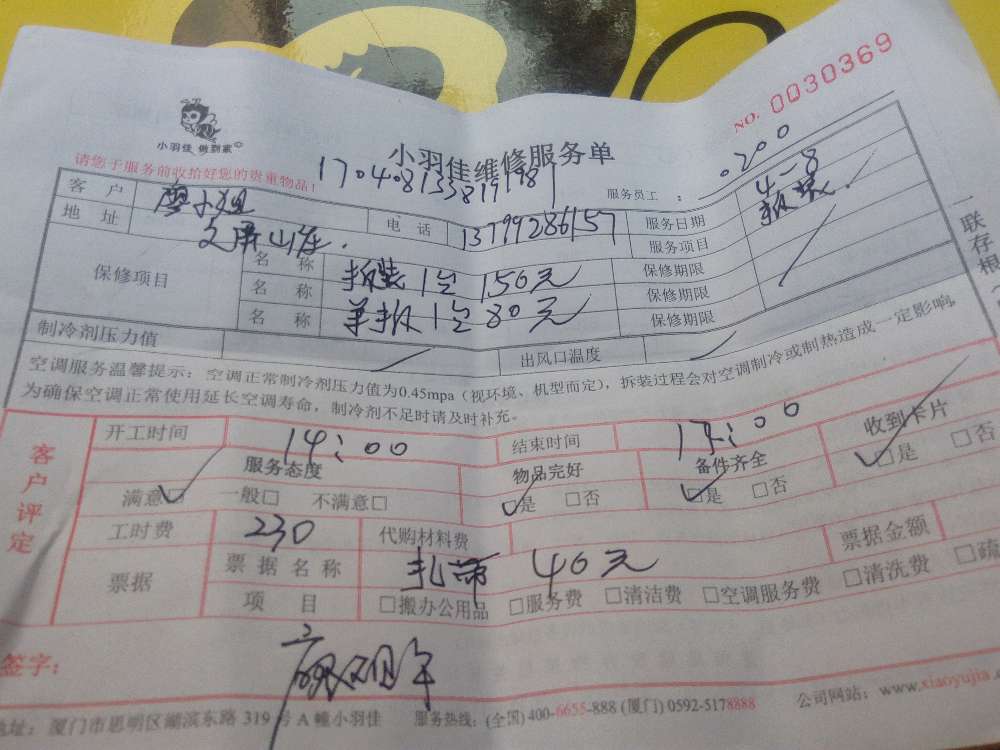 NO. 0030369
小羽佳 做到家
小羽佳维修服务单
请您于服务前收拾好您的贵重物品!
服务员工 : 0200
客户 廖小姐 电话 13799286157 服务日期 4-8
地址 文屏山庄. 服务项目
保修项目 名称 拆装1台 150元 保修期限
名称 单拆1台80元 保修期限
名称 保修期限
制冷剂压力值 出风口温度
空调服务温馨提示:空调正常制冷剂压力值为0.45mpa(视环境、机型而定),拆装过程会对空调制冷或制热造成一定影响,
为确保空调正常使用延长空调寿命,制冷剂不足时请及时补充。
一联存根
客户评定
开工时间 14:00 结束时间 17:00
服务态度 物品完好 备件齐全 收到卡片
满意□ 一般□ 不满意□ □是 □否 □是 □否 □是 □否
工时费 230 代购材料费 票据金额
票据 票据名称 40元
项目 □搬办公用品 □服务费 □清洁费 □空调服务费 □清洗费 □疏
签字:
地址:厦门市思明区湖滨东路 319 号 A 幢小羽佳 服务热线:(全国) 400-6655-888 (厦门) 0592-5178888 公司网站:www.xiaoyujia.